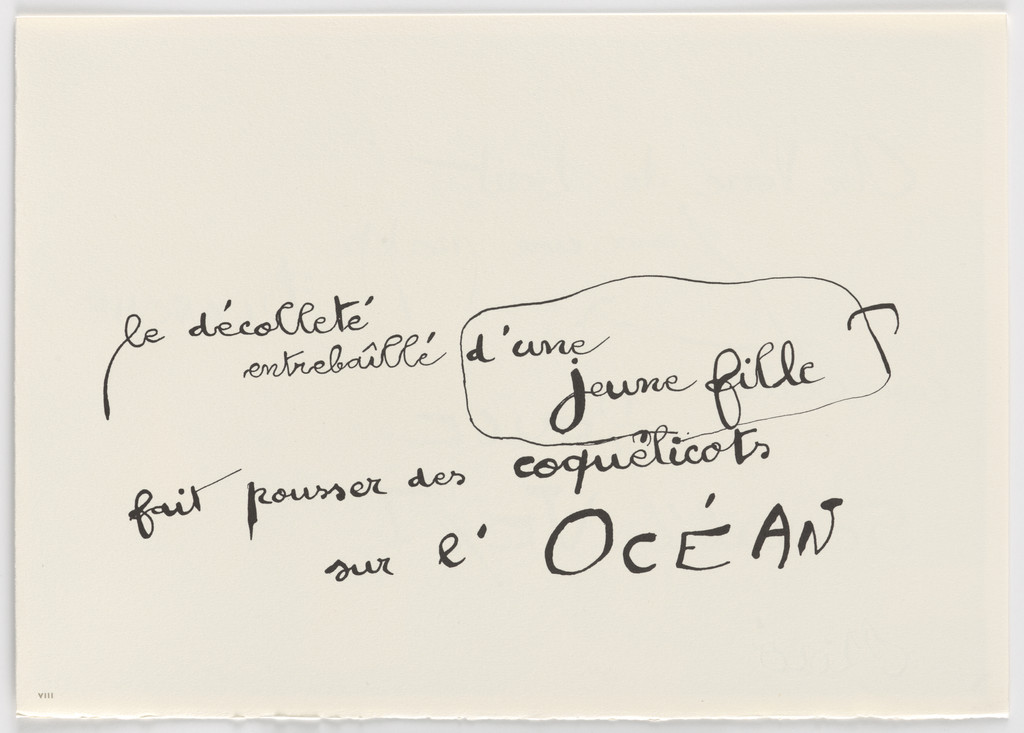 le décolleté
entrebaîllé d'une
jeune fille
fait pousser des coquelicots
sur l'OCÉAN
VIII